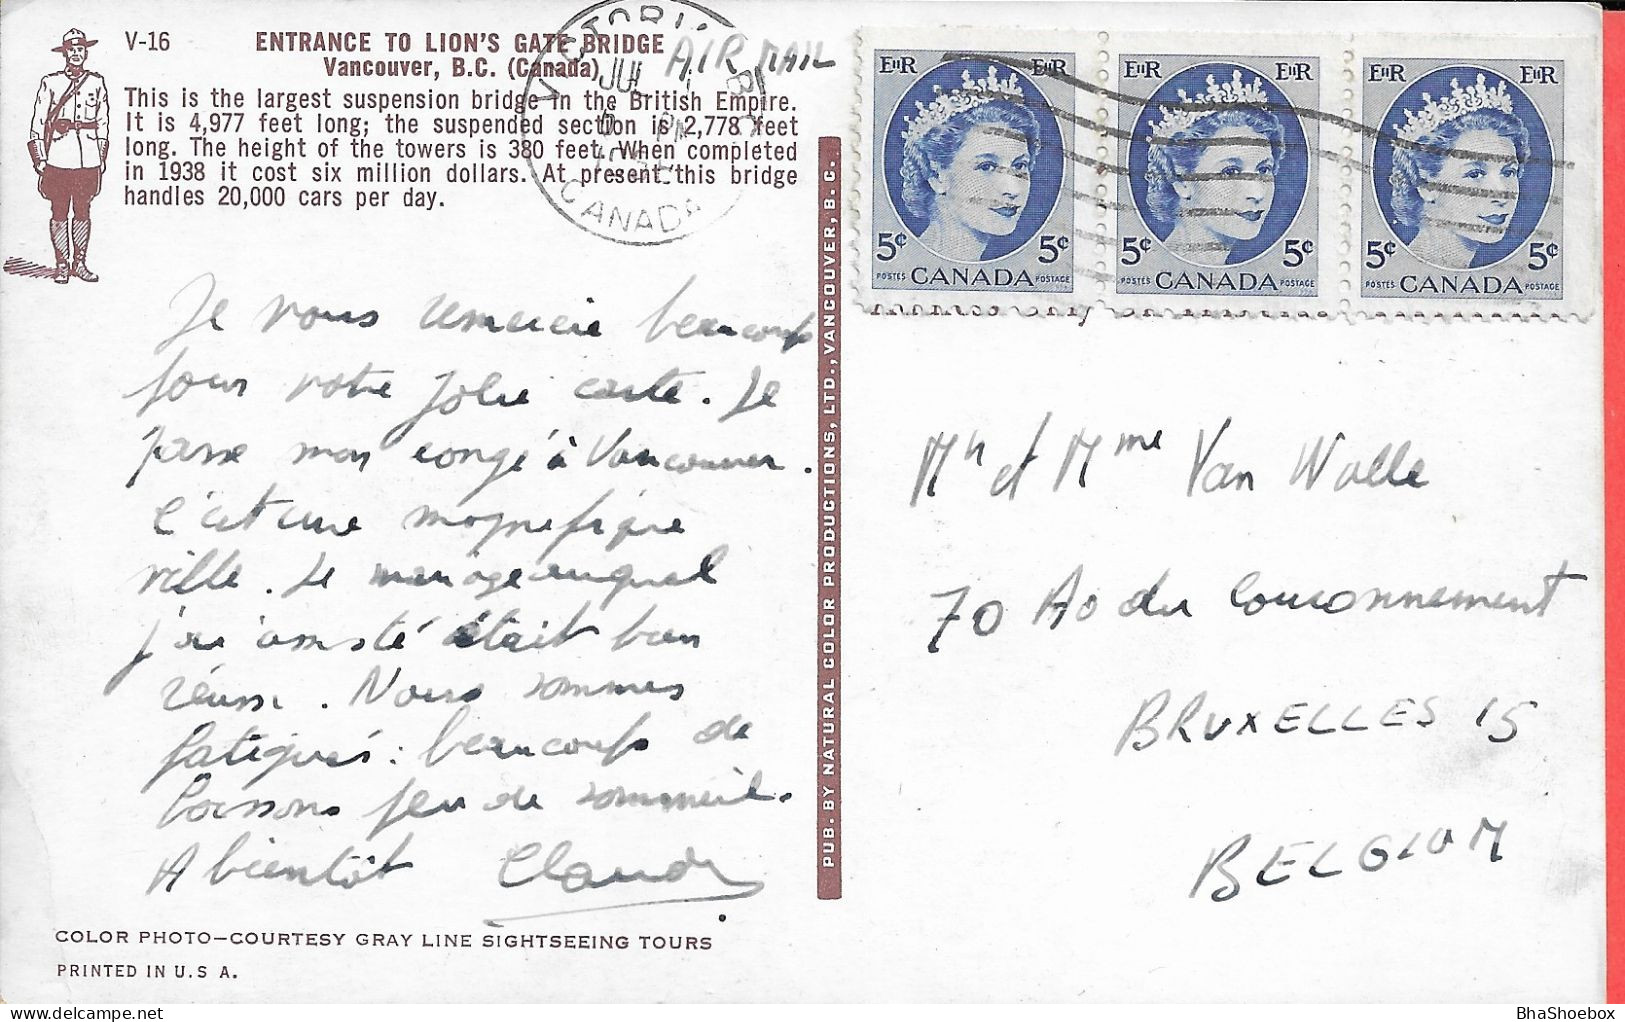 V-16
ENTRANCE TO LION'S GATE BRIDGE
Vancouver, B.C. (Canada)
This is the largest suspension bridge in the British Empire.
It is 4,977 feet long; the suspended section is 2,778 feet
long. The height of the towers is 380 feet. When completed
in 1938 it cost six million dollars. At present this bridge
handles 20,000 cars per day.
VICTORIA B.C.
JUL
PM
CANADA
AIR MAIL
EIIR EIIR
5¢ 5¢
POSTES CANADA POSTAGE
EIIR EIIR
5¢ 5¢
POSTES CANADA POSTAGE
EIIR EIIR
5¢ 5¢
POSTES CANADA POSTAGE
Je vous remercie beaucoup
pour votre jolie carte. Je
passe mon congé à Vancouver.
C'est une magnifique
ville. Le mariage auquel
j'ai assisté était bien
réussi. Nous sommes
fatigués: beaucoup de
boissons peu de sommeil.
A bientôt Claude
PUB. BY NATURAL COLOR PRODUCTIONS, LTD., VANCOUVER, B.C.
Mr et Mme Van Walle
70 Av du Couronnement
BRUXELLES 15
BELGIUM
COLOR PHOTO—COURTESY GRAY LINE SIGHTSEEING TOURS
PRINTED IN U.S A.
BhaShoebox